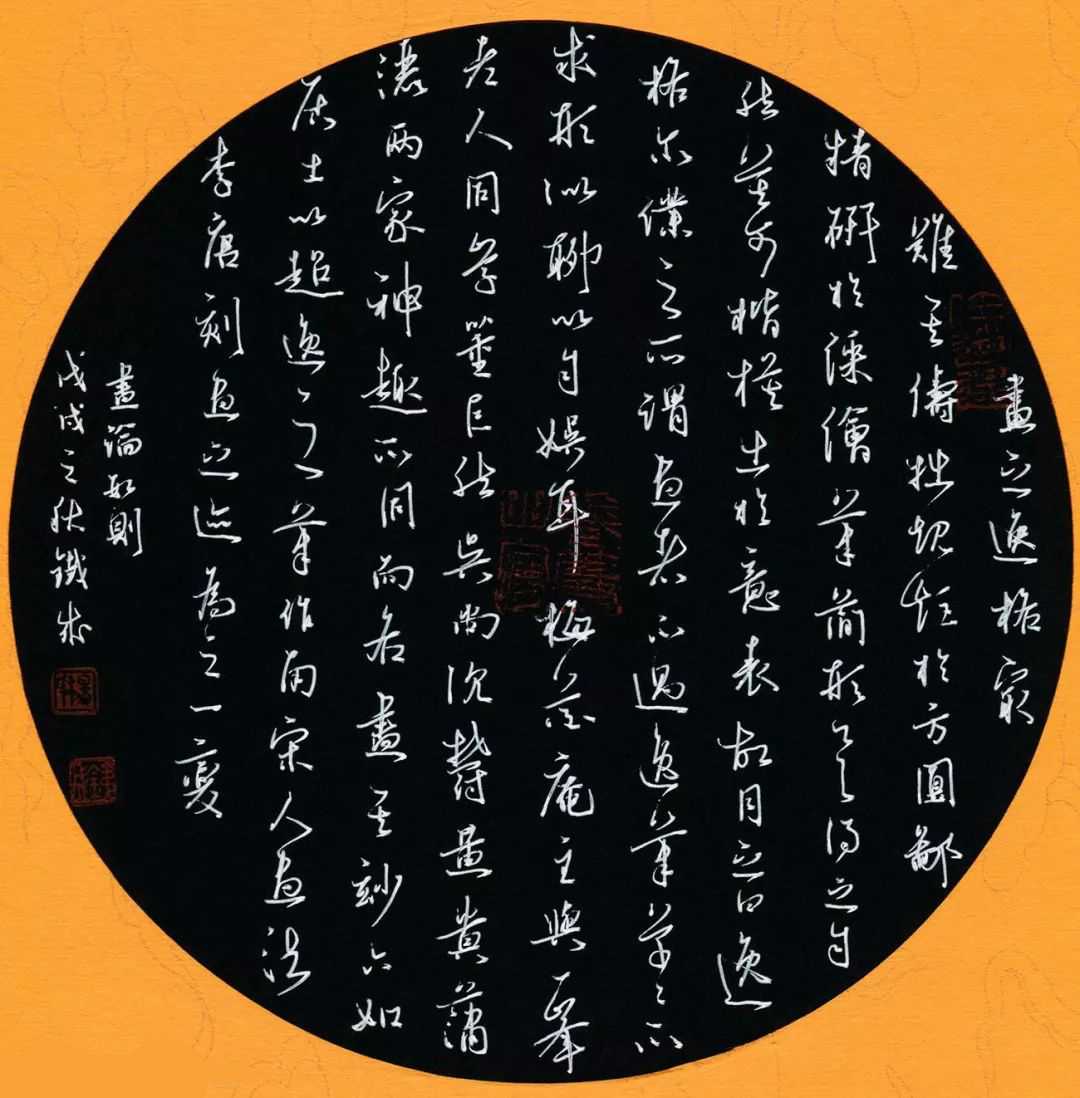 畫之逸格最
難其儔拙規矩於方圓鄙
精研於彩繪筆簡形具得之自
然莫可楷模出於意表故目之曰逸
格尔僕之所謂畫者不過逸筆草草不
求形似聊以自娱耳梅花庵主與一峯
老人同學董巨然吴尚沉鬱黄貴蕭
灑兩家神趣不同而各盡其玅六如
居士以超逸之筆作南宋人畫法
李唐刻畫之迹為之一變
畫論數則
戊戌之秋鐵成